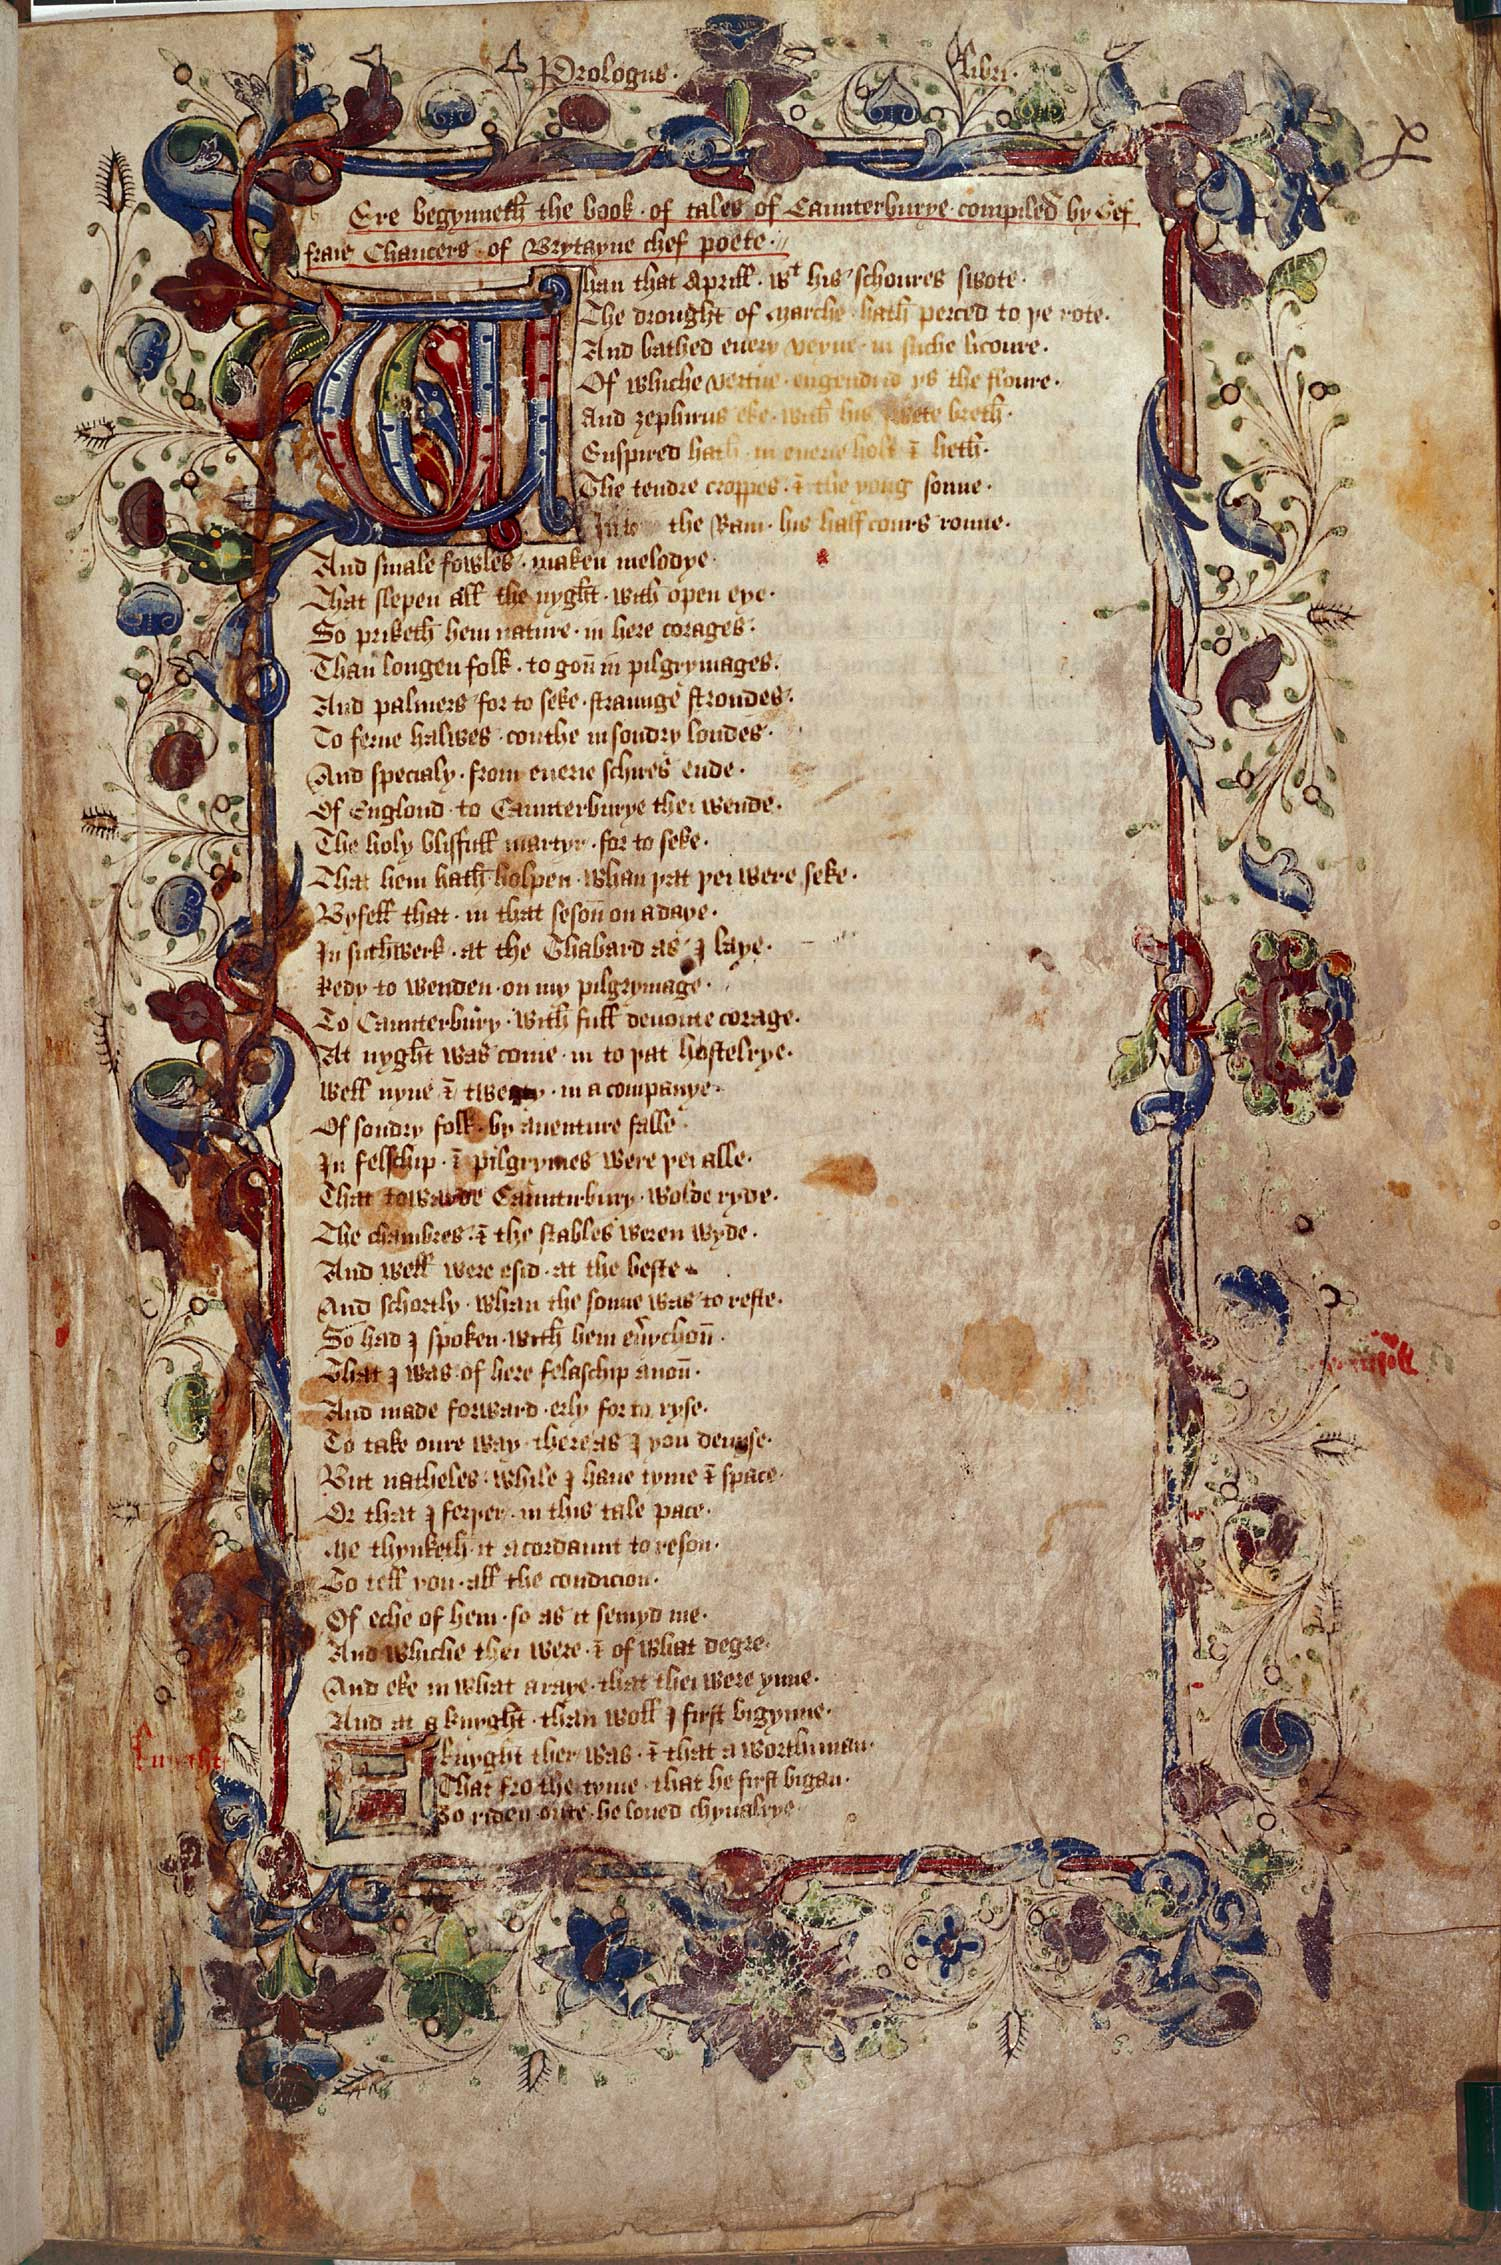 Prologus. libri.
Ere begynneth the book · of tales of Caunterburye · compiled by Gef
fraie Chaucers · of Brytayne chef poete ·
Whan that Aprill · wt his schoures swote ·
The drought of Marche hath perced to þe rote ·
And bathed euery veyne · in suche licoure ·
Of whiche vertue · engendrid ys the floure ·
And zephirus eke · with his swete breth ·
Enspired hath · in euerie holt & heth ·
The tendre croppes · & the yong sonne ·
In to the Ram · his half cours ronne ·
And smale fowles · maken melodye ·
That slepen all the nyght · with open eye ·
So priketh hem nature · in here corages ·
Than longen folk · to gon in pilgrymages ·
And palmers for to seke · straunge strondes ·
To ferne halwes · couthe in sondry londes ·
And specialy · from euerie schires ende ·
Of Englond · to Caunterburye thei wende ·
The holy blisfull martyr · for to seke ·
That hem hath holpen · whan þat þei were seke ·
Byfell that · in that seson on a daye ·
In suthwerk · at the Thabard as I laye ·
Redy to wenden · on my pilgrymage ·
To Caunterbury · with full deuoute corage ·
At nyght was come · in to þat hostelrye ·
Well nyne & twenty · in a companye ·
Of sondry folk · by auenture falle
In felschip · & pilgrymes were þei alle ·
That towarde Caunturbury · wolde ryde ·
The chambres · & the stables weren wyde ·
And well were esid · at the beste
And schortly · whan the sonne was to reste ·
So had I spoken · with hem eu'ychon ·
That I was of here felaschip anon ·
And made forward · erly for to ryse ·
To take oure way · there as I you deuyse ·
But natheles · while I haue tyme & space
Or that I ferþer · in this tale pace ·
Me thynketh it acordaunt to reson ·
To tell you · all the condicion ·
Of eche of hem · so as it semyd me ·
And whiche thei were · & of what degre ·
And eke in what araye · that thei were ynne ·
And at a knyght · than woll I first bigynne ·
A knyght ther was · & that a worthi man ·
That fro the tyme · that he first bigan ·
To riden oute · he loued chyualrye